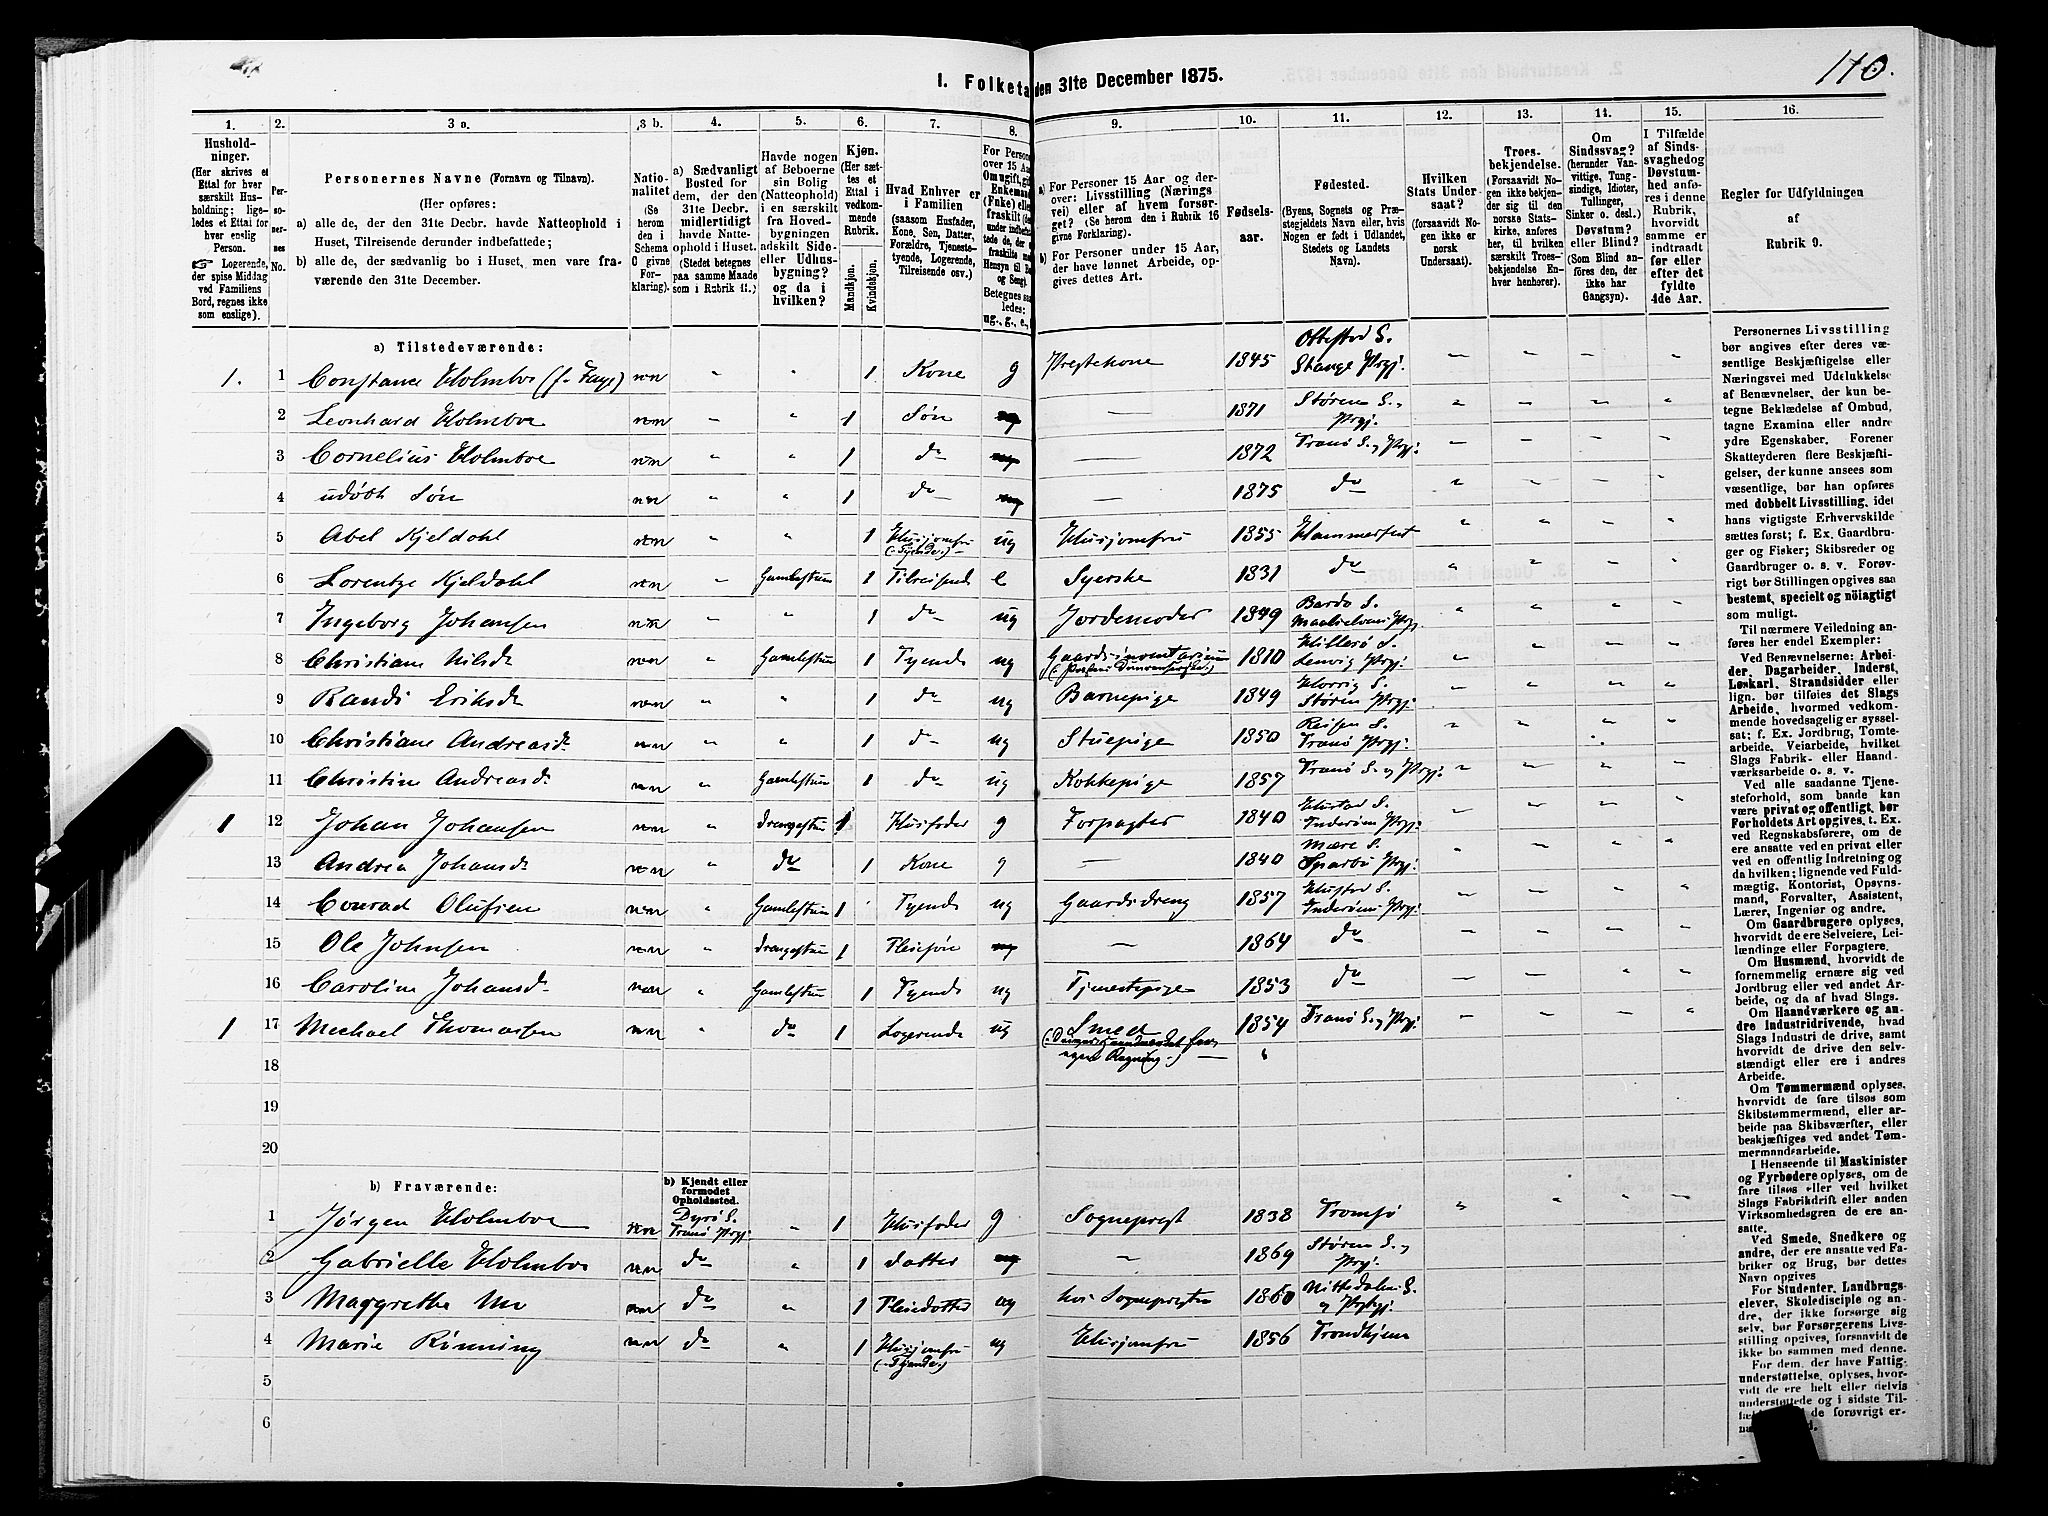 110.
I. Folketæ den 31te December 1875.
1. 2. 3 a. 3 b. 4. 5. 6. 7. 8. 9. 10. 11. 12. 13. 14. 15. 16.
Hushold-
ninger.
(Her skrives et
Ettal for hver
særskilt Hus-
holdning; lige-
ledes et Ettal for
hver enslig
Person.
☞ Logerende,
der spise Middag
ved Familiens
Bord, regnes ikke
som enslige).
Per-
so-
ner-
nes
No.
Personernes Navne (Fornavn og Tilnavn).
(Her opføres:
a) alle de, der den 31te Decbr. havde Natteophold i
Huset, Tilreisende derunder indbefattede;
b) alle de, der sædvanlig bo i Huset, men vare fra-
værende den 31te December.
Natio-
nalitet
(Se
herom
den i
Schema
C givne
For-
klaring).
a) Sædvanligt
Bosted for
dem, der den
31te Decbr.
midlertidigt
havde Natte-
ophold i Huset.
(Stedet betegnes
paa samme Maade
som i Rubrik 11.)
Havde nogen
af Beboerne
sin Bolig
(Natteophold)
i en særskilt
fra Hoved-
bygningen
adskilt Side-
eller Udhus-
bygning?
og da i
hvilken?
Kjøn.
(Her sæt-
tes et
Ettal i
vedkom-
mende
Rubrik.
Mandkjøn.
Kvindekjøn.
Hvad Enhver er
i Familien
(saasom Husfader,
Kone, Søn, Datter,
Forældre, Tjeneste-
tyende, Logerende,
Tilreisende osv.)
For Person
over 15 Aa
Om ugift, gi
Enkeman
(Fnke) eller
fraskilt
Betegnes saa
ledes:
ug., g., e.,
a) For Personer 15 Aar og der-
over: Livsstilling (Nærings-
vei) eller af hvem forsør-
get? (Se herom den i Rubrik 16
givne Forklaring).
b) For Personer under 15 Aar,
der have lønnet Arbeide, op-
gives dettes Art.
Fødsels-
aar.
Fødested.
(Byens, Sognets og Præ-
stegjeldets Navn eller, hvis
Nogen er født i Udlandet,
Stedets og Landets
Navn).
Hvilken
Stats Under-
saat?
(forsaavidt No-
gen ikke er
norsk
Undersaat).
Troes-
bekjendelse.
(Forsaavidt No-
gen ikke bekjen-
der sig til den
norske Stats-
kirke, anføres
her, til hvilken
særskilt Troes-
bekjendelse En-
hver henhører).
Om
Sindssvag?
(herunder Van-
vittige, Tung-
sindige, Idioter,
Tullinger,
Sinker o. desl.)
Døvstum?
eller Blind?
(Som Blind an-
føres den, der
ikke har
Gangsyn).
I Tilfælde
af Sinds-
svaghed og
Døvstum-
hed anfø-
res i denne
Rubrik,
hvorvidt
samme er
indtraadt
før eller
efter det
fyldte
4de Aar.
Regler for Udfyldningen
af
Rubrik 9.
a) Tilstedeværende:
1. 1 Constance Holmboe (f. Faye) n.n " " 1 Kone g Prestekone 1845 Ottestad S. Stange Prgj.
2 Leonhard Holmboe n.n " " 1 Søn — 1871 Støren S. Prgj.
3 Cornelius Holmboe n.n " " 1 do — 1872 Tranø S. og Prgj:
4 udøbt Søn n.n " " 1 do — 1875 do
5 Abel Kjeldahl n.n " " 1 Husjomfru (:Tyende:) ug Husjomfru 1855 Hammerfest
6 Lorentze Kjeldahl n.n " Gamlestuen 1 Tilreisende e Syerske 1831 do
7 Ingeborg Johansen n.n " " 1 do ug Jordemoder 1849 Bardo S. Maalselvens Prgj.
8 Christiane Nilsd. n.n " Gamlestuen 1 Tyende ug Gaardsinventarium 1810 Hillesø S. Lenvig Prgj:
9 Randi Eriksd. n.n " " 1 do ug Barnepige 1849 Horrig S. Støren Prgj:
10 Christiane Andreasd. n.n " " 1 do ug Stuepige 1850 Reisen S. Tranø Prgj:
11 Christine Andreasd. n.n " Gamlestuen 1 do ug Kokkepige 1857 Tranø S. og Prgj:
1 12 Johan Johansen n.n " drengestuen 1 Husfader g Forpagter 1840 Hustad S. Inderøens Prgj:
13 Andrea Johansd. n.n " do 1 Kone g — 1840 Mære S. Sparbu Prgj:
14 Conrad Olufsen n.n " Gamlestuen 1 Tyende ug Gaardsdreng 1857 Hustad S. Inderøens Prgj:
15 Ole Johnsen n.n " drengestuen 1 Pleiesøn — 1864 do
16 Caroline Johansd. n.n " Gamlestuen 1 Tyende ug Tjenestepige 1853 do
1 17 Mechael Thomassen n.n " do 1 Logerende ug Smed egne Regning:) 1854 Tranø S. og Prgj:
18
19
20
b) Fraværende:
b) Kjendt eller
formodet
Opholdssted.
1 Jørgen Holmboe n.n Dyrø S. Tranø Prgj: " 1 Husfader g Sogneprest 1838 Tromsø
2 Gabrielle Holmboe n.n do " 1 datter " 1869 Støren S. og Prgj:
3 Maggrethe Mo n.n do " 1 Pleiedatter ug hos Sognepresten 1860 Nittedalen S. og Prgj:
4 Marie Rønning n.n do " 1 Husjomfru (:Tyende:) ug Husjomfru 1856 Trondhjem
5
6
Personernes Livsstilling
bør angives efter deres væ-
sentlige Beskjæftigelse eller
Næringsvei med Udelukkelse
af Benævnelser, der kun be-
tegne Beklædelse af Ombud,
tagne Examina eller andre
ydre Egenskaber. Forener
Skatteyderen flere Beskjæfti-
gelser, der kunne ansees som
væsentlige, bør han opføres
med dobbelt Livsstilling, idet
hans vigtigste Erhvervskilde
sættes først; f. Ex. Gaardbru-
ger og Fisker; Skibsreder og
Gaardbruger o. s. v. Forøv-
rigt bør Stillingen opgives saa
bestemt, specielt og nöiagtigt
som muligt.
Til nærmere Veiledning an-
føres her endel Exempler:
Ved Benævnelserne: Arbei-
der, Dagarbeider, Inderst,
Løskarl, Strandsidder eller
lign. bør tilføies det Slags
Arbeide, hvormed vedkom-
mende hovedsagelig er syssel-
sat; f. Ex. Jordbrug, Tomte-
arbeide, Veiarbeide, hvilket
Slags Fabrik- eller Haand-
værksarbeide o. s. v.
Ved alle saadanne Tjene-
steforhold, som baade kan
være privat og offentligt, bør
Forholdets Art opgives, t. Ex.
ved Regnskabsførere, om de
ere ansatte ved en privat eller
ved en offentlig Indretning og
da hvilken; lignende ved Fuld-
mægtig, Kontorist, Opsyns-
mand, Forvalter, Assistent,
Lærer, Ingeniør og andre.
Om Gaardbrugere oplyses,
hvorvidt de ere Selveiere, Lei-
lændinge eller Forpagtere.
Om Husmænd, hvorvidt de
fornemmelig ernære sig ved
Jordbrug eller ved andet Ar-
beide, og da af hvad Slags.
Om Haandværkere og an-
dre Industridrivende, hvad
Slags Industri de drive, samt
hvorvidt de drive den selv-
stændigt eller ere i andres
Arbeide.
Om Tømmermænd oplyses,
hvorvidt de fare tilsøs som
Skibstømmermænd, eller ar-
beide paa Skibsværfter, eller
beskjæftiges ved andet Tøm-
mermandsarbeide.
I Henseende til Maskinister
og Fyrbødere oplyses, om de
fare tilsøs eller ved hvilket
Slags Fabrikdrift eller anden
Virksomhedsgren de ere an-
satte.
Ved Smede, Snedkere og
andre, der ere ansatte ved Fa-
briker og Brug, bør dettes
Navn opgives
For Studenter, Landbrugs-
elever, Skoledisciple og an-
dre, der ikke forsørge sig
selv, bør Forsørgerens Livs-
stilling opgives, forsaavidt de
ikke bo sammen med denne.
For dem, der have Fattig-
understøttelse, oplyses, hvor-
vidt de ere helt eller delvis
understøttede og i sidste Til-
de forøvrigt er-